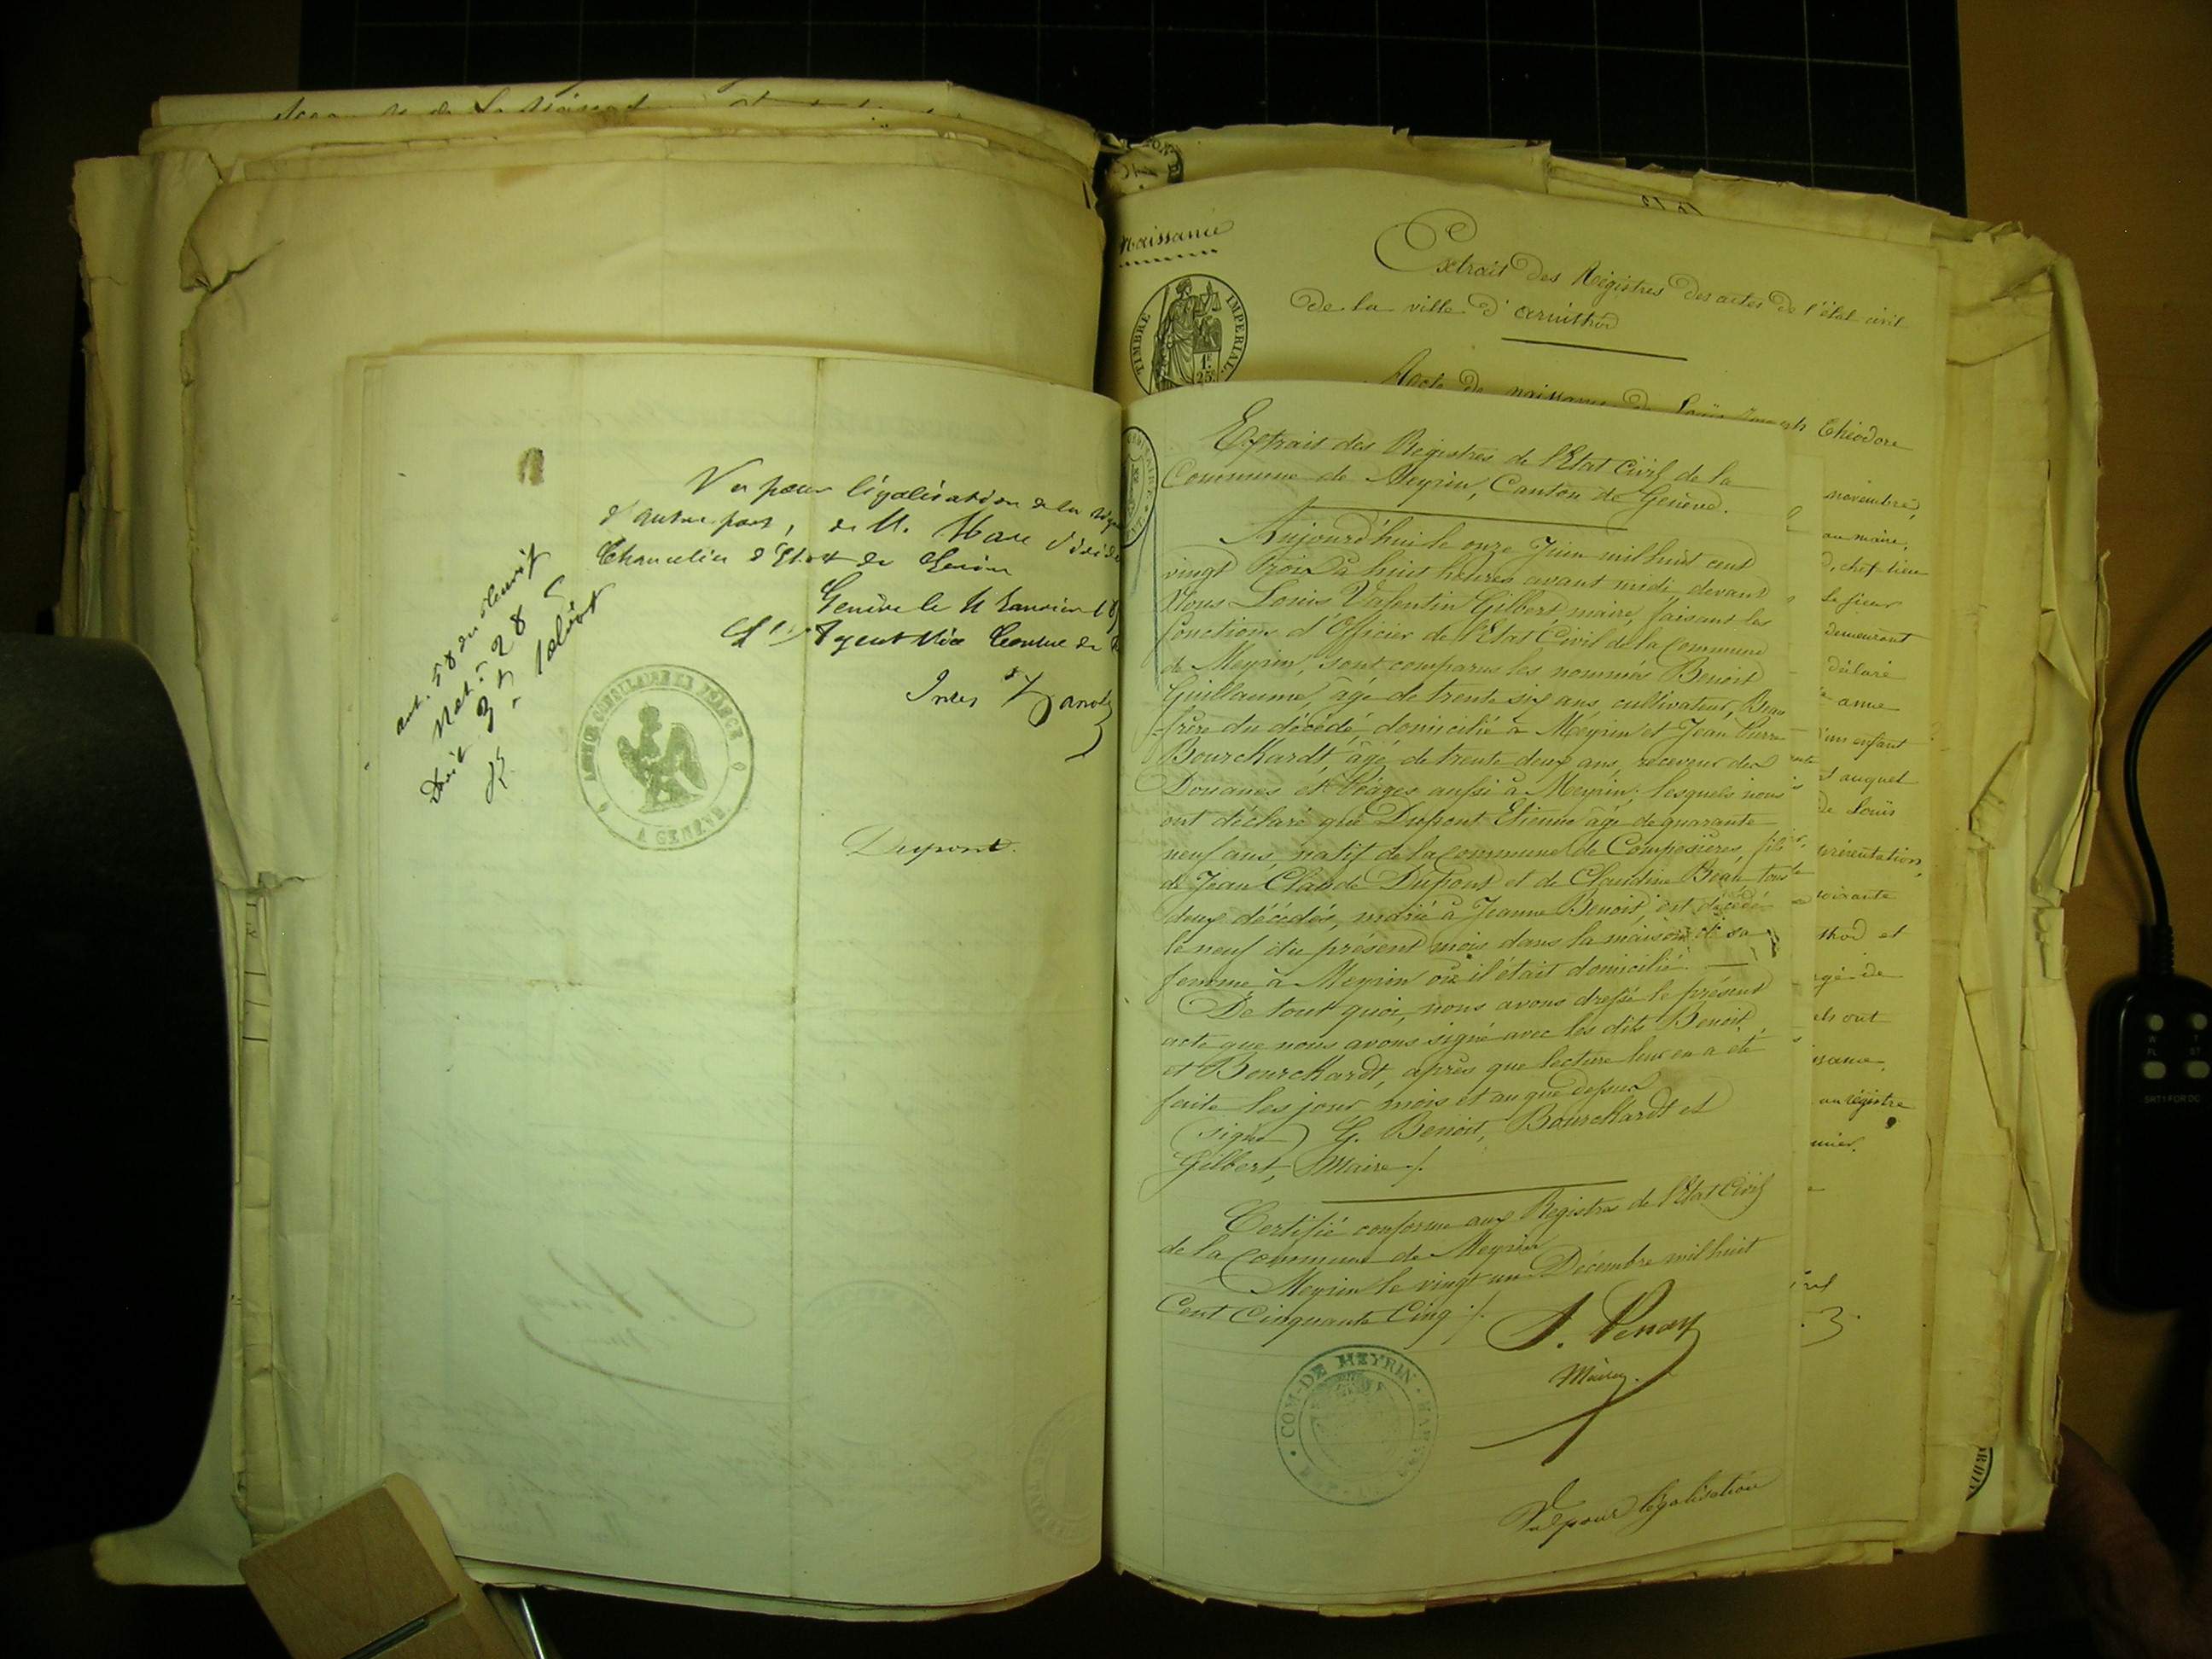 Vu pour légalisation de la
d'autre part, de M. Marc
Chancelier d'Etat de Genève
Genève le 4 Janvier
Agent Vice Consul de
Dupont.
art. 58 du
Droit
AGENCE CONSULAIRE DE FRANCE
A GENÈVE
Naissance
TIMBRE IMPERIAL
1f
25c
Extrait des Régistres des actes de l'état civil
de la ville d'arinthod
Acte de naissance de Louis Joseph Théodore
novembre,
au maire,
chef-lieu
Le sieur
demeurant
déclaré
anne
un enfant
et auquel
de Louis
présentation,
soixante
thod et
agé de
els ont
issance,
au régistre
Extrait des Registres de l'Etat Civil de la
Commune de Meyrin, Canton de Genève.
Aujourd'hui le onze Juin mil huit cent
vingt trois à huit heures avant midi, devant
Nous Louis Valentin Gilbert, maire, faisant les
fonctions d'Officier de l'Etat Civil de la Commune
de Meyrin, sont comparus les nommés Benoit
Guillaume, âgé de trente six ans, cultivateur, Beau
frère du décédé domicilié à Meyrin et Jean Pierre
Bourckardt, âgé de trente deux ans, receveur des
Douanes et Péages aussi à Meyrin; lesquels nous
ont déclaré que Dupont Etienne âgé de quarante
neuf ans, natif de la Commune de Compesières, fils
de Jean Claude Dupont et de Claudine Beau tous
deux décédés, marié à Jeanne Benoit, est décédé
le neuf du présent mois dans la maison de sa
femme à Meyrin où il était domicilié.
De tout quoi, nous avons dressé le présent
acte que nous avons signé avec les dits Benoit
et Bourckardt, après que lecture leur en a été
faite les jour, mois et an que dessus
(signé) G. Benoit, Bourckardt et
Gilbert, Maire /.
Certifié conforme aux Registres de l'Etat Civil
de la Commune de Meyrin
Meyrin le vingt un Décembre mil huit
Cent Cinquante Cinq /.
Maire.
COM. DE MEYRIN
Vu pour légalisation